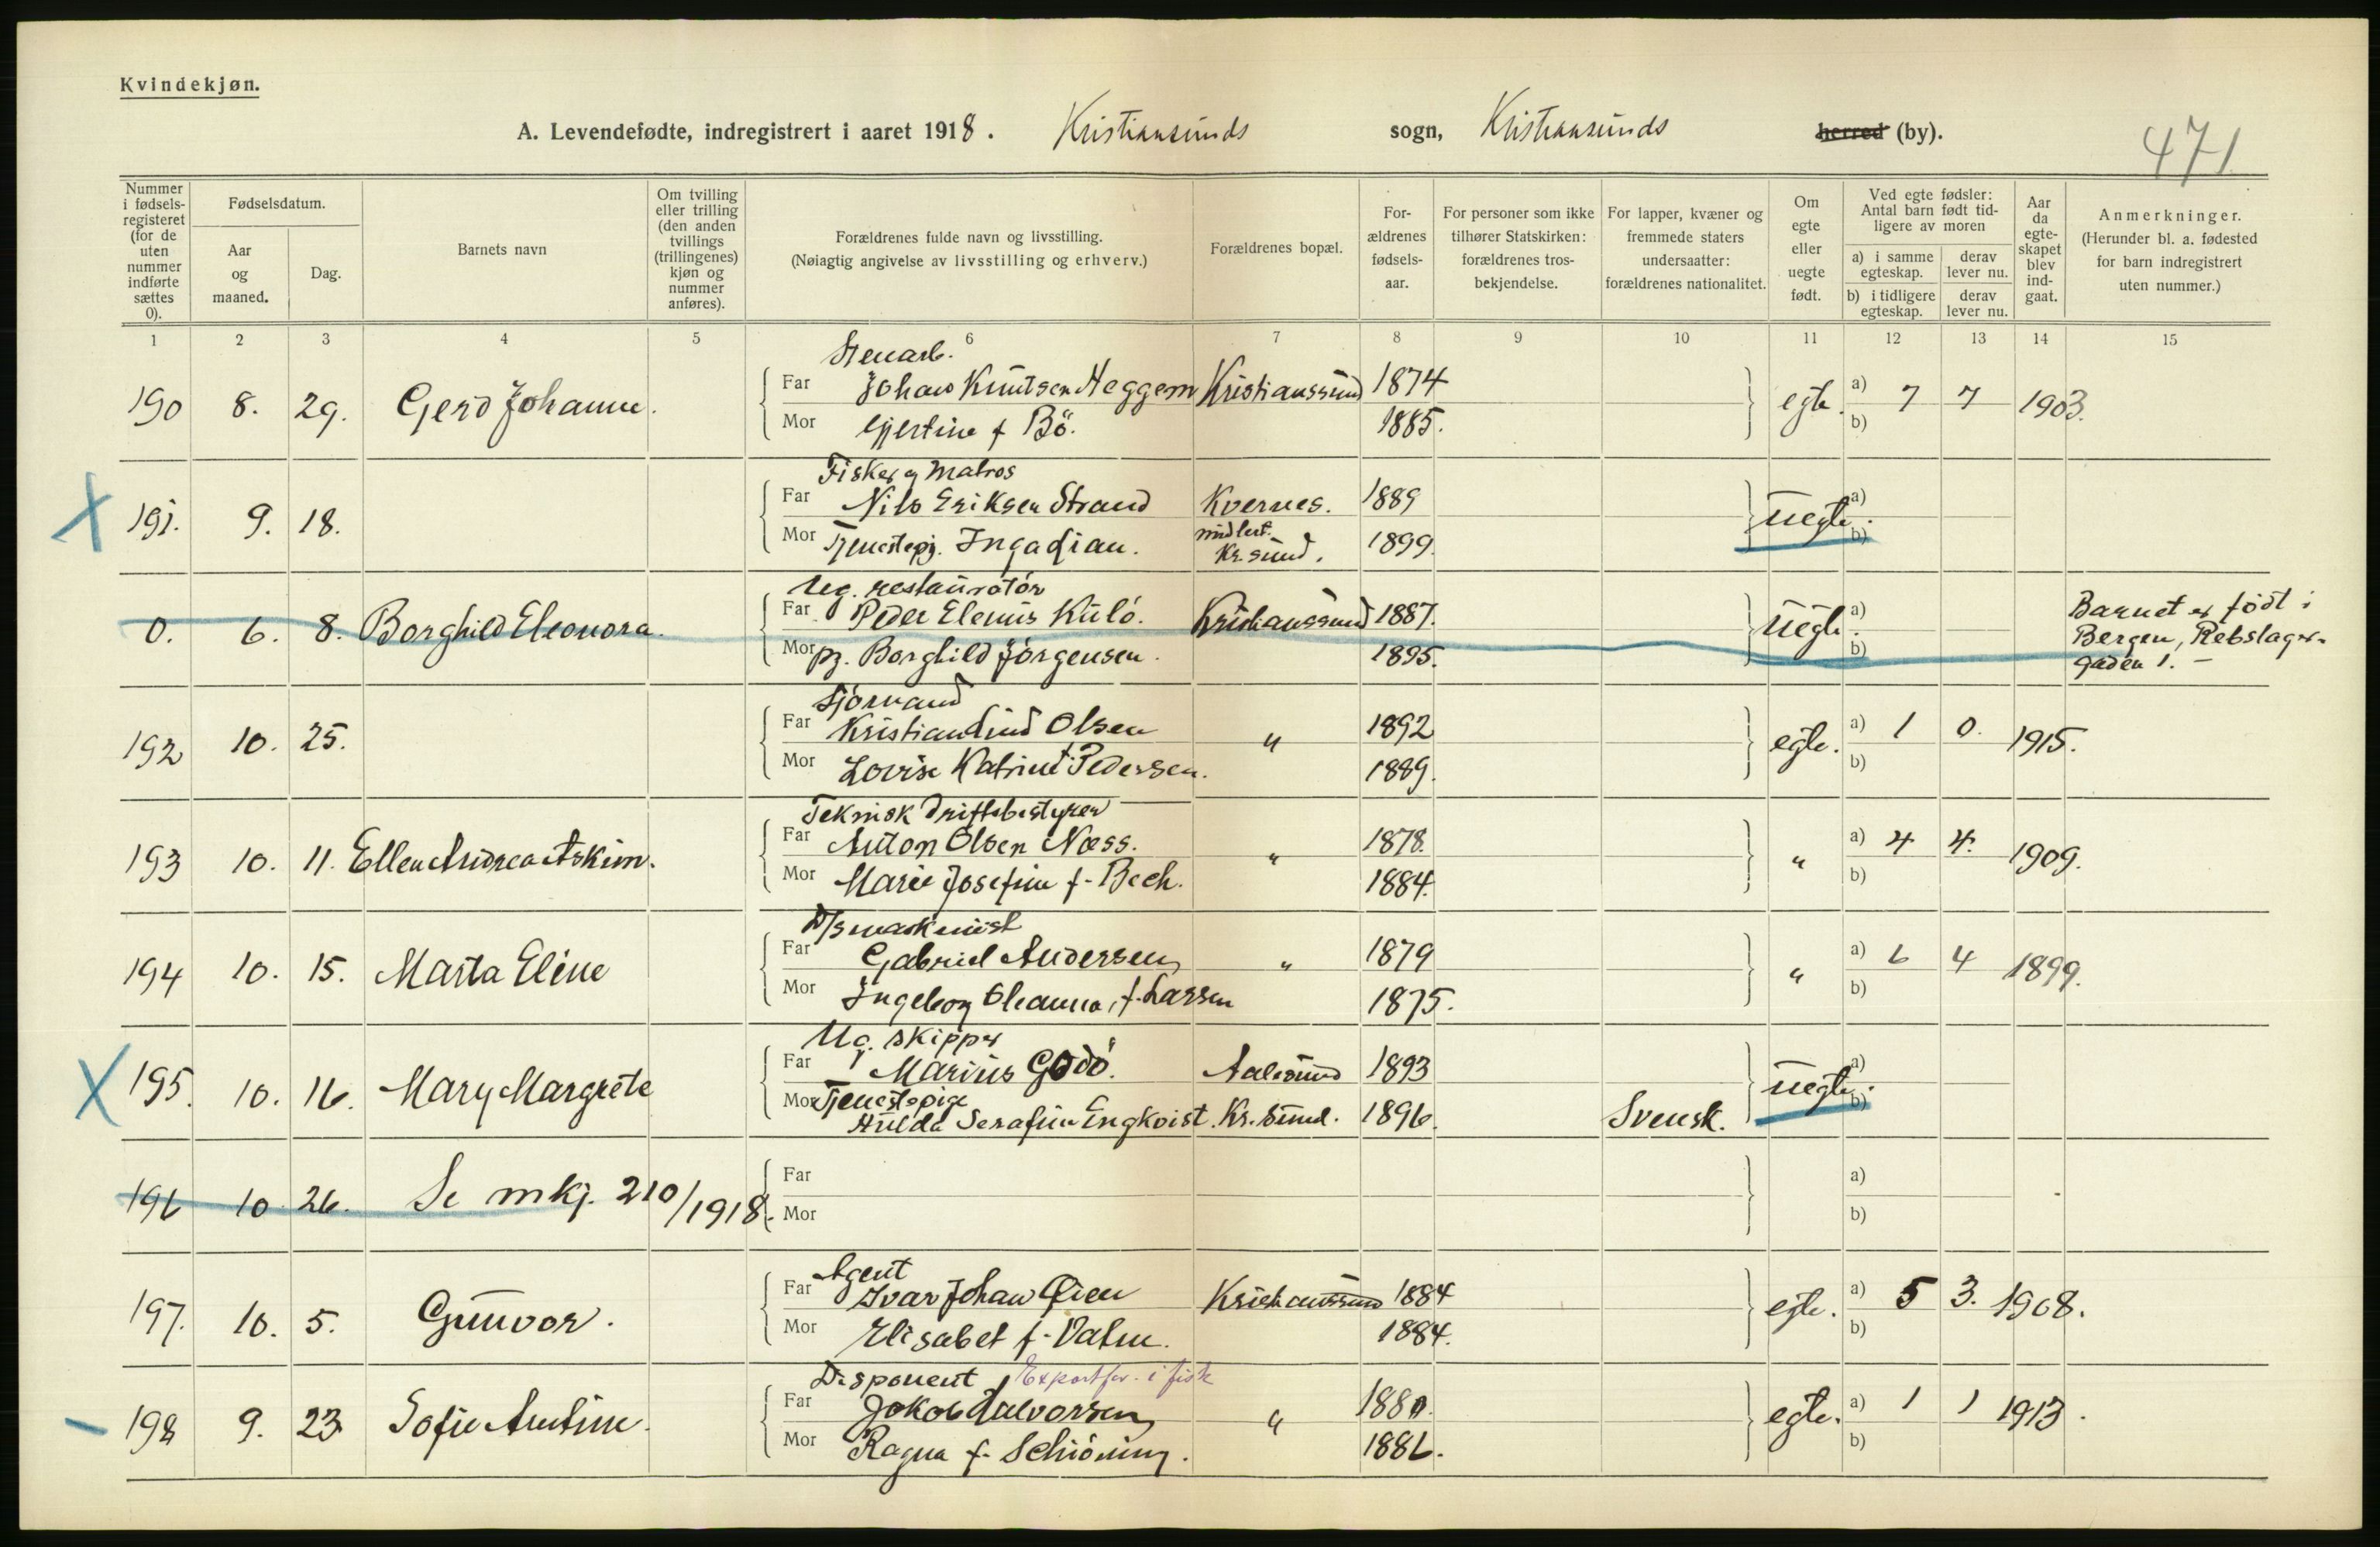 Kvindekjøn.
A. Levendefødte, indregistrert i aaret 1918. Kristiansunds sogn, Kristiansunds herred (by).
471
Nummer i fødsels-registeret (for de uten nummer indførte sættes 0).
Fødselsdatum.
Aar og maaned.
Dag.
Barnets navn
Om tvilling eller trilling (den anden tvillings (trillingenes) kjøn og nummer anføres).
Forældrenes fulde navn og livsstilling.
(Nøiagtig angivelse av livsstilling og erhverv.)
Forældrenes bopæl.
For-ældrenes fødsels-aar.
For personer som ikke tilhører Statskirken: forældrenes tros-bekjendelse.
For lapper, kvæner og fremmede staters undersaatter: forældrenes nationalitet.
Om egte eller uegte født.
Ved egte fødsler: Antal barn født tid-ligere av moren
a) i samme egteskap.
derav lever nu.
b) i tidligere egteskap.
derav lever nu.
Aar da egte-skapet blev ind-gaat.
Anmerkninger.
(Herunder bl. a. fødested for barn indregistrert uten nummer.)
1 2 3 4 5 6 7 8 9 10 11 12 13 14 15
Stenarb.
190 8. 29. Gerd Johanne. Far Johan Knutsen Heggem Kristianssund 1874 egte. a) 7 7 1903.
Mor Gjertine f Bö. 1885. b)
Fisker og Matros
191. 9. 18. Far Nils Eriksen Strand Kvernes. 1889 uegte. a)
Mor Tjenestepg. Inga Gjan. midlert. Kr. sund. 1899. b)
Ug. restauratör
0. 6. 8. Borghild Eleonora. Far Peder Elenus Kulö. Kristianssund 1887. uegte. a) Barnet er födt i
Mor pg. Borghild Jörgensen. 1895. b) Bergen, Rebslager-
gaden 1. —
Sjömand
192 10. 25. Far Kristian Lind Olsen " 1892 egte. a) 1 0. 1915.
Mor Lovise Katrine f. Pedersen. 1889. b)
Teknisk driftsbestyrer
193 10. 11. Ellen Andrea Askim. Far Anton Olsen Næss. " 1878. " a) 4 4. 1909.
Mor Marie Josefine f. Bech. 1884. b)
D/s maskinist
194 10. 15. Marta Eline Far Gabriel Andersen " 1879 " a) 6 4 1899.
Mor Ingeborg Oleanna, f. Larsen 1875. b)
Ug. skipper
195. 10. 16. Mary Margrete Far Marius Godö. Aalesund 1893 uegte. a)
Mor Tjenestepige
Hulda Serafine Engkvist. Kr. sund. 1896. Svensk. b)
196 10 26. Se mkj. 210/1918. Far a)
Mor b)
Agent
197. 10. 5. Gunvor. Far Ivar Johan Öien Kristianssund 1884 egte. a) 5 3. 1908.
Mor Elisabet f. Dahn. 1884. b)
Disponent Exportfor. i fisk
198 9. 23 Sofie Antine. Far Jokob Halvorsen " 1880. egte. a) 1 1 1913.
Mor Ragna f. Schiöning. 1886. b)